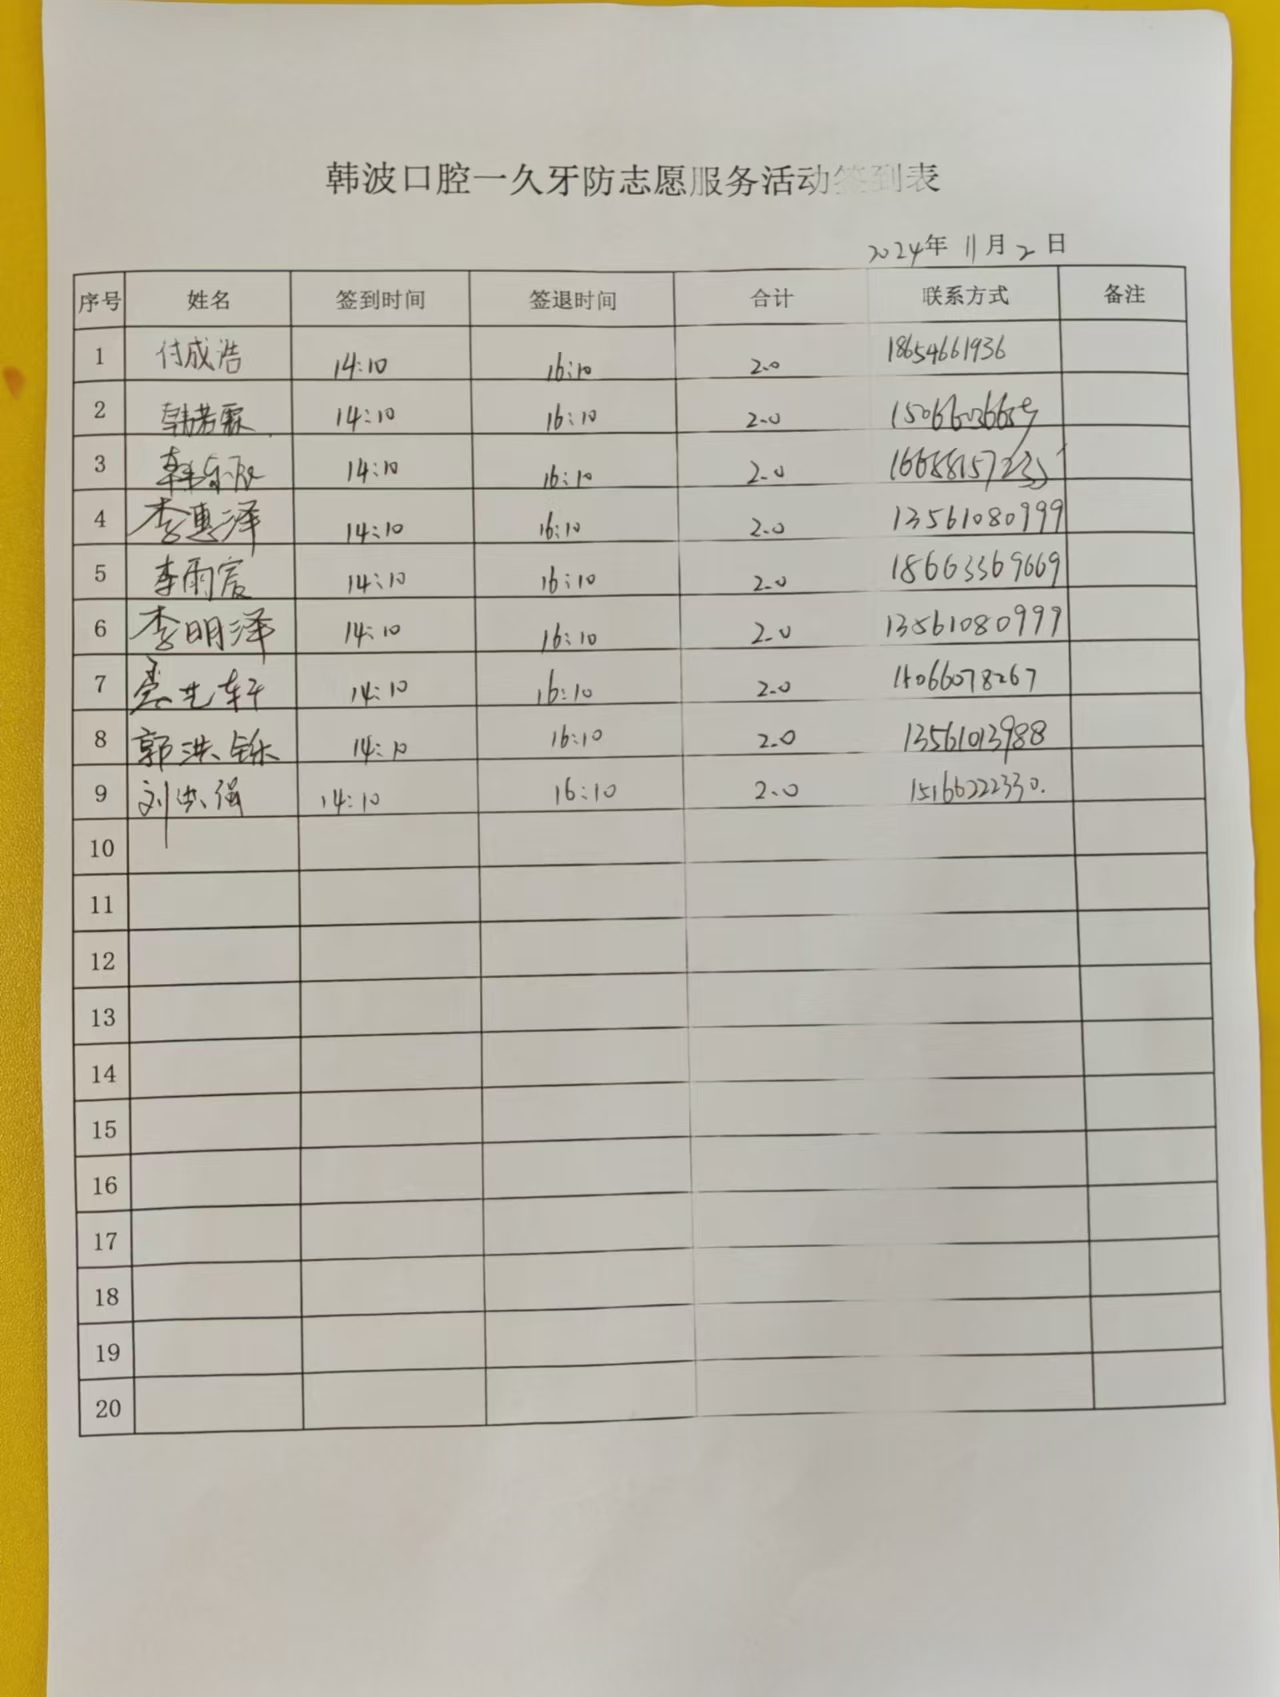 韩波口腔一久牙防志愿服务活动签到表
2024年 11月 2 日
序号 姓名 签到时间 签退时间 合计 联系方式 备注
1 付成浩 14:10 16:10 2.0 18654661936
2 韩若霖 14:10 16:10 2.0
3 14:10 16:10 2.0
4 李惠泽 14:10 16:10 2.0 13561080999
5 李雨宸 14:10 16:10 2.0 18663369669
6 李明泽 14:10 16:10 2.0 13561080999
7 14:10 16:10 2.0 15066078267
8 郭洪铄 14:10 16:10 2.0 13561013988
9 刘洪强 14:10 16:10 2.0 15166222330.
10
11
12
13
14
15
16
17
18
19
20